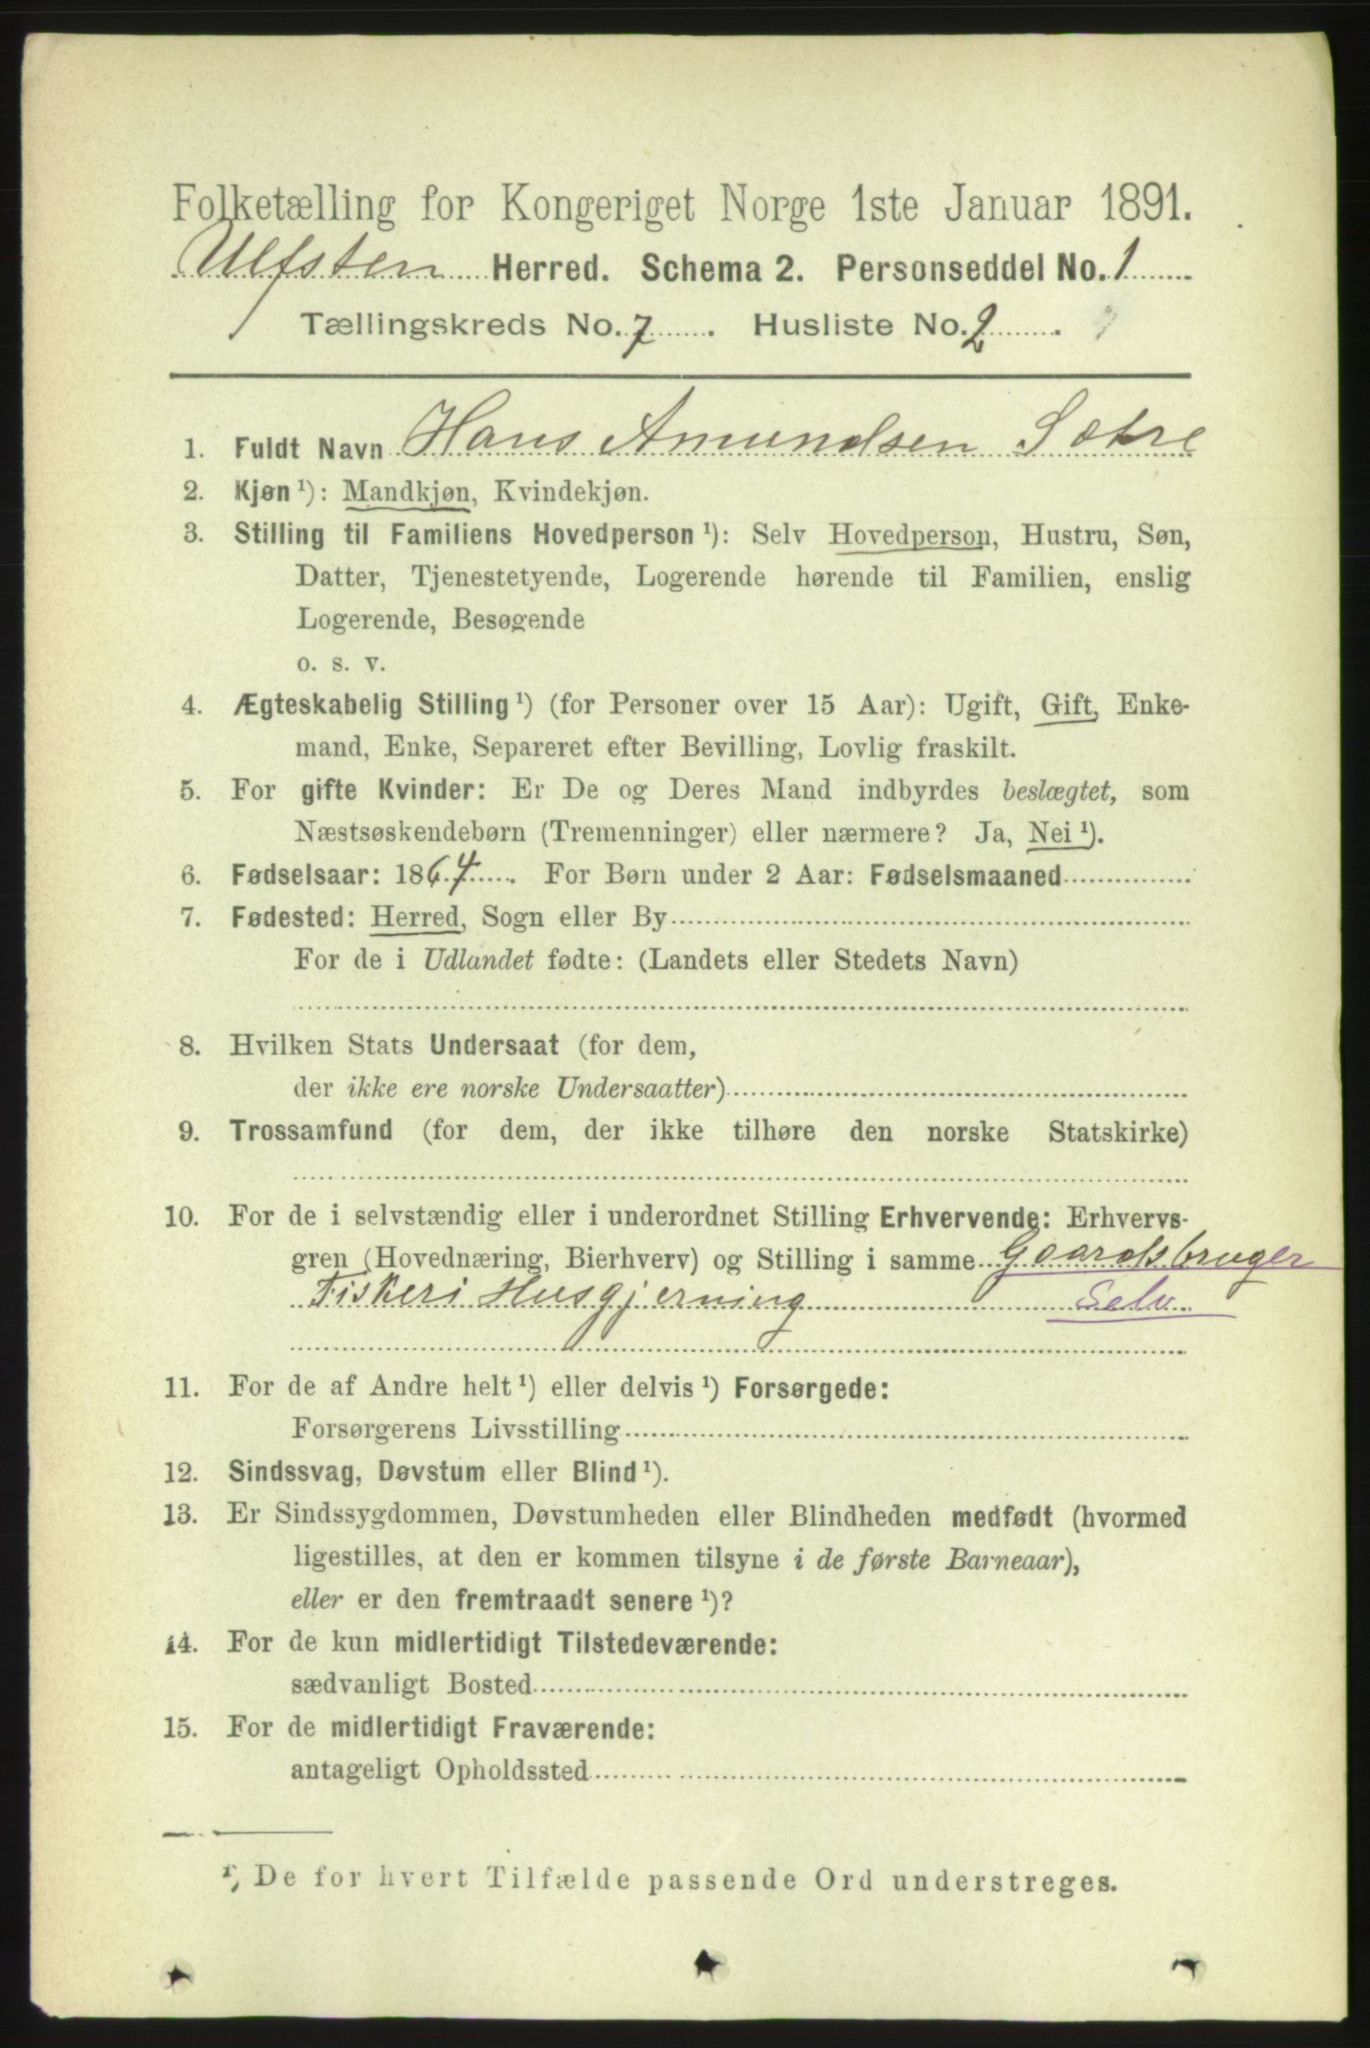 Folketælling for Kongeriget Norge 1ste Januar 1891.
Ulfsten Herred. Schema 2. Personseddel No. 1
Tællingskreds No. 7. Husliste No. 2.
1. Fuldt Navn Hans Amundsen Sætre
2. Kjøn ¹): Mandkjøn, Kvindekjøn.
3. Stilling til Familiens Hovedperson ¹): Selv Hovedperson, Hustru, Søn,
Datter, Tjenestetyende, Logerende hørende til Familien, enslig
Logerende, Besøgende
o. s. v.
4. Ægteskabelig Stilling ¹) (for Personer over 15 Aar): Ugift, Gift, Enke-
mand, Enke, Separeret efter Bevilling, Lovlig fraskilt.
5. For gifte Kvinder: Er De og Deres Mand indbyrdes beslægtet, som
Næstsøskendebørn (Tremenninger) eller nærmere? Ja, Nei ¹).
6. Fødselsaar: 1864. For Børn under 2 Aar: Fødselsmaaned
7. Fødested: Herred, Sogn eller By
For de i Udlandet fødte: (Landets eller Stedets Navn)
8. Hvilken Stats Undersaat (for dem,
der ikke ere norske Undersaatter)
9. Trossamfund (for dem, der ikke tilhøre den norske Statskirke)
10. For de i selvstændig eller i underordnet Stilling Erhvervende: Erhvervs-
gren (Hovednæring, Bierhverv) og Stilling i samme Gaardsbruger
Fiskeri Husgjerning Selv
11. For de af Andre helt ¹) eller delvis ¹) Forsørgede:
Forsørgerens Livsstilling
12. Sindssvag, Døvstum eller Blind ¹).
13. Er Sindssygdommen, Døvstumheden eller Blindheden medfødt (hvormed
ligestilles, at den er kommen tilsyne i de første Barneaar),
eller er den fremtraadt senere ¹)?
14. For de kun midlertidigt Tilstedeværende:
sædvanligt Bosted
15. For de midlertidigt Fraværende:
antageligt Opholdssted
¹) De for hvert Tilfælde passende Ord understreges.